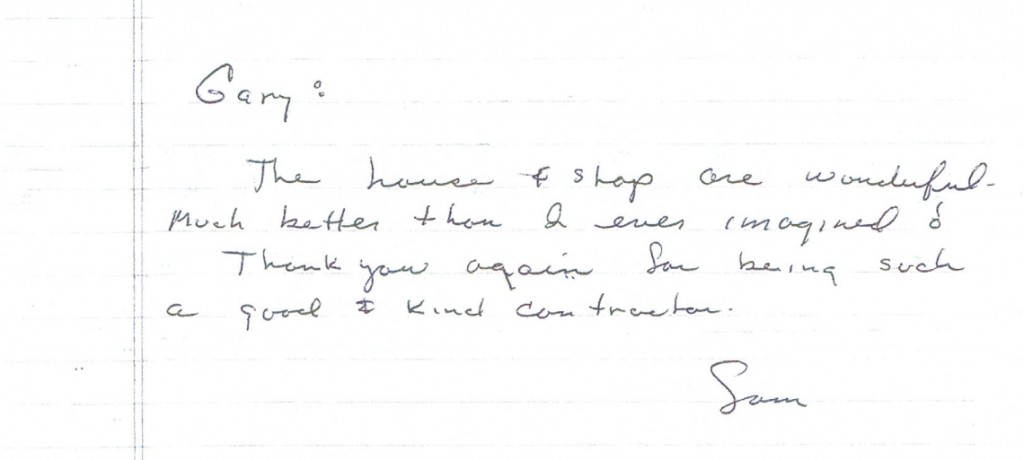 Gary:
The house & shop are wonderful-
Much better than I ever imagined!
Thank you again for being such
a good & kind contractor.
Sam